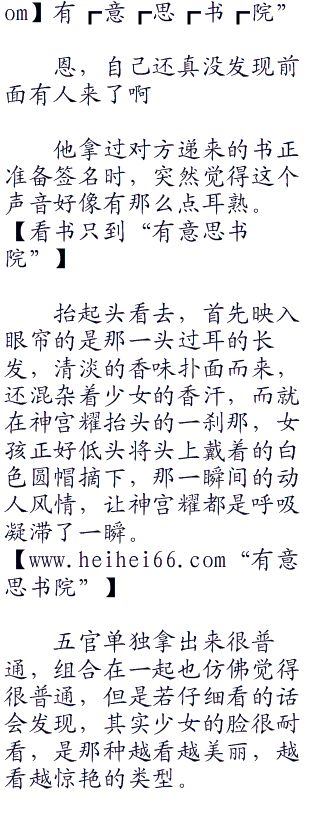 om】有┏意┏思┏书┏院”
恩，自己还真没发现前
面有人来了啊
他拿过对方递来的书正
准备签名时，突然觉得这个
声音好像有那么点耳熟。
【看书只到“有意思书
院”】
抬起头看去，首先映入
眼帘的是那一头过耳的长
发，清淡的香味扑面而来，
还混杂着少女的香汗，而就
在神宫耀抬头的一刹那，女
孩正好低头将头上戴着的白
色圆帽摘下，那一瞬间的动
人风情，让神宫耀都是呼吸
凝滞了一瞬。
【www.heihei66.com“有意
思书院”】
五官单独拿出来很普
通，组合在一起也仿佛觉得
很普通，但是若仔细看的话
会发现，其实少女的脸很耐
看，是那种越看越美丽，越
看越惊艳的类型。